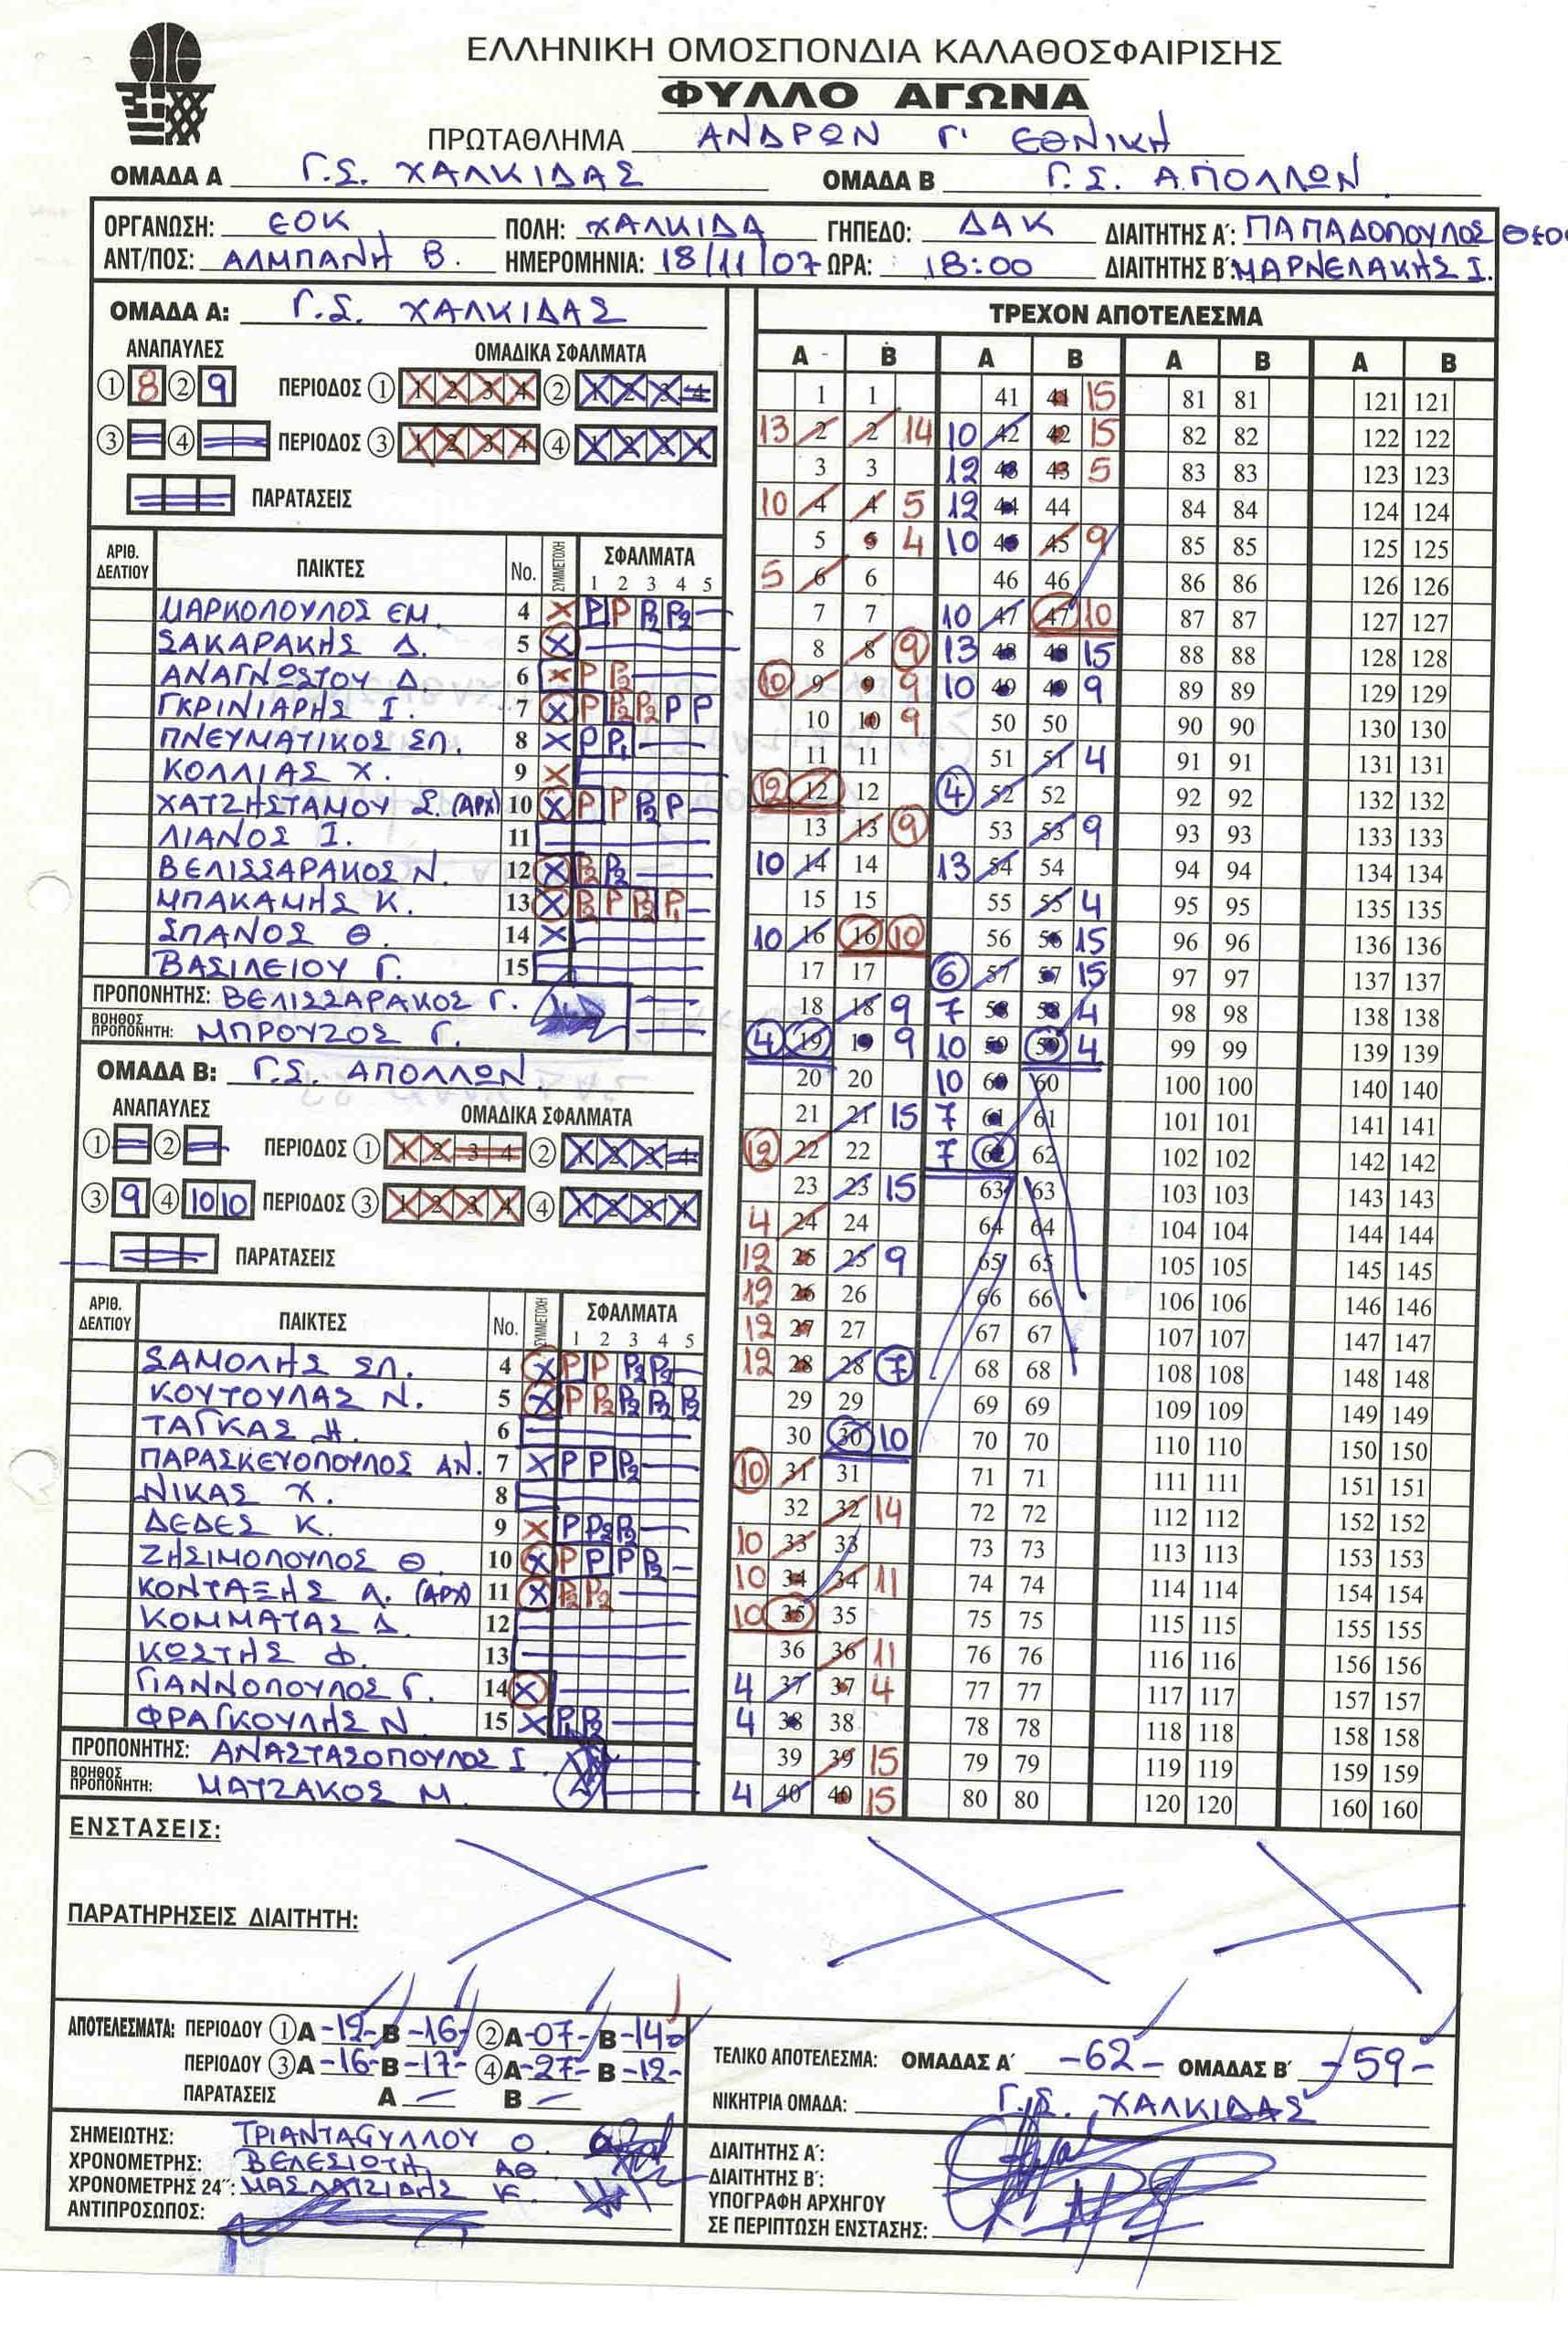 ΕΛΛΗΝΙΚΗ ΟΜΟΣΠΟΝΔΙΑ ΚΑΛΑΘΟΣΦΑΙΡΙΣΗΣ
ΦΥΛΛΟ ΑΓΩΝΑ
ΠΡΩΤΑΘΛΗΜΑ ΑΝΔΡΩΝ Γ' ΕΘΝΙΚΗ
ΟΜΑΔΑ Α Γ.Σ. ΧΑΛΚΙΔΑΣ ΟΜΑΔΑ Β Γ.Σ. ΑΠΟΛΛΩΝ
ΟΡΓΑΝΩΣΗ: ΕΟΚ ΠΟΛΗ: ΧΑΛΚΙΔΑ ΓΗΠΕΔΟ: ΔΑΚ ΔΙΑΙΤΗΤΗΣ Α΄: ΠΑΠΑΔΟΠΟΥΛΟΣ
ΑΝΤ/ΠΟΣ: ΑΛΜΠΑΝΗ Β. ΗΜΕΡΟΜΗΝΙΑ: 18/11/07 ΩΡΑ: 18:00 ΔΙΑΙΤΗΤΗΣ Β΄: ΜΑΡΝΕΛΑΚΗΣ Ι.
ΟΜΑΔΑ Α: Γ.Σ. ΧΑΛΚΙΔΑΣ
ΑΝΑΠΑΥΛΕΣ ΟΜΑΔΙΚΑ ΣΦΑΛΜΑΤΑ
1 8 2 9 ΠΕΡΙΟΔΟΣ 1 1 2 3 4 2 1 2 3 4
3 4 ΠΕΡΙΟΔΟΣ 3 1 2 3 4 4 1 2 3 4
ΠΑΡΑΤΑΣΕΙΣ
ΑΡΙΘ. ΔΕΛΤΙΟΥ ΠΑΙΚΤΕΣ No. ΣΥΜΜΕΤΟΧΗ ΣΦΑΛΜΑΤΑ 1 2 3 4 5
ΜΑΡΚΟΠΟΥΛΟΣ ΕΜ. 4 X P P P2 P2
ΣΑΚΑΡΑΚΗΣ Δ. 5 X
ΑΝΑΓΝΩΣΤΟΥ Δ. 6 X P P2
ΓΚΡΙΝΙΑΡΗΣ Ι. 7 X P P2 P2 P P
ΠΝΕΥΜΑΤΙΚΟΣ ΣΠ. 8 X P P1
ΚΟΛΛΙΑΣ Χ. 9 X
ΧΑΤΖΗΣΤΑΜΟΥ Σ. (ΑΡΧ) 10 X P P P2 P
ΛΙΑΝΟΣ Ι. 11
ΒΕΛΙΣΣΑΡΑΚΟΣ Ν. 12 X P2 P2
ΜΠΑΚΑΜΗΣ Κ. 13 X P2 P P2 P1
ΣΠΑΝΟΣ Θ. 14 X
ΒΑΣΙΛΕΙΟΥ Γ. 15
ΠΡΟΠΟΝΗΤΗΣ: ΒΕΛΙΣΣΑΡΑΚΟΣ Γ.
ΒΟΗΘΟΣ ΠΡΟΠΟΝΗΤΗ: ΜΠΡΟΥΖΟΣ Γ.
ΟΜΑΔΑ Β: Γ.Σ. ΑΠΟΛΛΩΝ
ΑΝΑΠΑΥΛΕΣ ΟΜΑΔΙΚΑ ΣΦΑΛΜΑΤΑ
1 2 ΠΕΡΙΟΔΟΣ 1 1 2 3 4 2 1 2 3 4
3 9 4 10 10 ΠΕΡΙΟΔΟΣ 3 1 2 3 4 4 1 2 3 4
ΠΑΡΑΤΑΣΕΙΣ
ΑΡΙΘ. ΔΕΛΤΙΟΥ ΠΑΙΚΤΕΣ No. ΣΥΜΜΕΤΟΧΗ ΣΦΑΛΜΑΤΑ 1 2 3 4 5
ΣΑΜΟΛΗΣ ΣΠ. 4 X P P P2 P2
ΚΟΥΤΟΥΛΑΣ Ν. 5 X P P2 P2 P2 P2
ΤΑΓΚΑΣ Η. 6
ΠΑΡΑΣΚΕΥΟΠΟΥΛΟΣ ΑΝ. 7 X P P P2
ΝΙΚΑΣ Χ. 8
ΔΕΔΕΣ Κ. 9 X P P2 P2
ΖΗΣΙΜΟΠΟΥΛΟΣ Θ. 10 X P P P P2
ΚΟΝΤΑΞΗΣ Α. (ΑΡΧ) 11 X P2 P2
ΚΟΜΜΑΤΑΣ Δ. 12
ΚΩΣΤΗΣ Φ. 13
ΓΙΑΝΝΟΠΟΥΛΟΣ Γ. 14 X
ΦΡΑΓΚΟΥΛΗΣ Ν. 15 X P1 P2
ΠΡΟΠΟΝΗΤΗΣ: ΑΝΑΣΤΑΣΟΠΟΥΛΟΣ Ι.
ΒΟΗΘΟΣ ΠΡΟΠΟΝΗΤΗ: ΜΑΤΖΑΚΟΣ Μ.
ΤΡΕΧΟΝ ΑΠΟΤΕΛΕΣΜΑ
Α Β Α Β Α Β Α Β
1 1 41 41 15 81 81 121 121
13 2 2 14 10 42 42 15 82 82 122 122
3 3 12 43 43 5 83 83 123 123
10 4 4 5 12 44 44 84 84 124 124
5 5 4 10 45 45 9 85 85 125 125
5 6 6 46 46 86 86 126 126
7 7 10 47 47 10 87 87 127 127
8 8 9 13 48 48 15 88 88 128 128
10 9 9 9 10 49 49 9 89 89 129 129
10 10 9 50 50 90 90 130 130
11 11 51 51 4 91 91 131 131
12 12 12 4 52 52 92 92 132 132
13 13 9 53 53 9 93 93 133 133
10 14 14 13 54 54 94 94 134 134
15 15 55 55 4 95 95 135 135
10 16 16 10 56 56 15 96 96 136 136
17 17 6 57 57 15 97 97 137 137
18 18 9 7 58 58 4 98 98 138 138
4 19 19 9 10 59 59 4 99 99 139 139
20 20 10 60 60 100 100 140 140
21 21 15 7 61 61 101 101 141 141
12 22 22 7 62 62 102 102 142 142
23 23 15 63 63 103 103 143 143
4 24 24 64 64 104 104 144 144
12 25 25 9 65 65 105 105 145 145
12 26 26 66 66 106 106 146 146
12 27 27 67 67 107 107 147 147
12 28 28 7 68 68 108 108 148 148
29 29 69 69 109 109 149 149
30 30 10 70 70 110 110 150 150
10 31 31 71 71 111 111 151 151
32 32 14 72 72 112 112 152 152
10 33 33 73 73 113 113 153 153
10 34 34 11 74 74 114 114 154 154
10 35 35 75 75 115 115 155 155
36 36 11 76 76 116 116 156 156
4 37 37 4 77 77 117 117 157 157
4 38 38 78 78 118 118 158 158
39 39 15 79 79 119 119 159 159
4 40 40 15 80 80 120 120 160 160
ΕΝΣΤΑΣΕΙΣ:
ΠΑΡΑΤΗΡΗΣΕΙΣ ΔΙΑΙΤΗΤΗ:
ΑΠΟΤΕΛΕΣΜΑΤΑ: ΠΕΡΙΟΔΟΥ 1 Α -12- Β -16- 2 Α -07- Β -14-
ΠΕΡΙΟΔΟΥ 3 Α -16- Β -17- 4 Α -27- Β -12-
ΠΑΡΑΤΑΣΕΙΣ Α — Β —
ΤΕΛΙΚΟ ΑΠΟΤΕΛΕΣΜΑ: ΟΜΑΔΑΣ Α΄ -62- ΟΜΑΔΑΣ Β΄ -59-
ΝΙΚΗΤΡΙΑ ΟΜΑΔΑ: Γ.Σ. ΧΑΛΚΙΔΑΣ
ΣΗΜΕΙΩΤΗΣ: ΤΡΙΑΝΤΑΦΥΛΛΟΥ Ο.
ΧΡΟΝΟΜΕΤΡΗΣ: ΒΕΛΕΣΙΩΤΗ ΑΘ.
ΧΡΟΝΟΜΕΤΡΗΣ 24΄΄:
ΑΝΤΙΠΡΟΣΩΠΟΣ:
ΔΙΑΙΤΗΤΗΣ Α΄:
ΔΙΑΙΤΗΤΗΣ Β΄:
ΥΠΟΓΡΑΦΗ ΑΡΧΗΓΟΥ
ΣΕ ΠΕΡΙΠΤΩΣΗ ΕΝΣΤΑΣΗΣ: